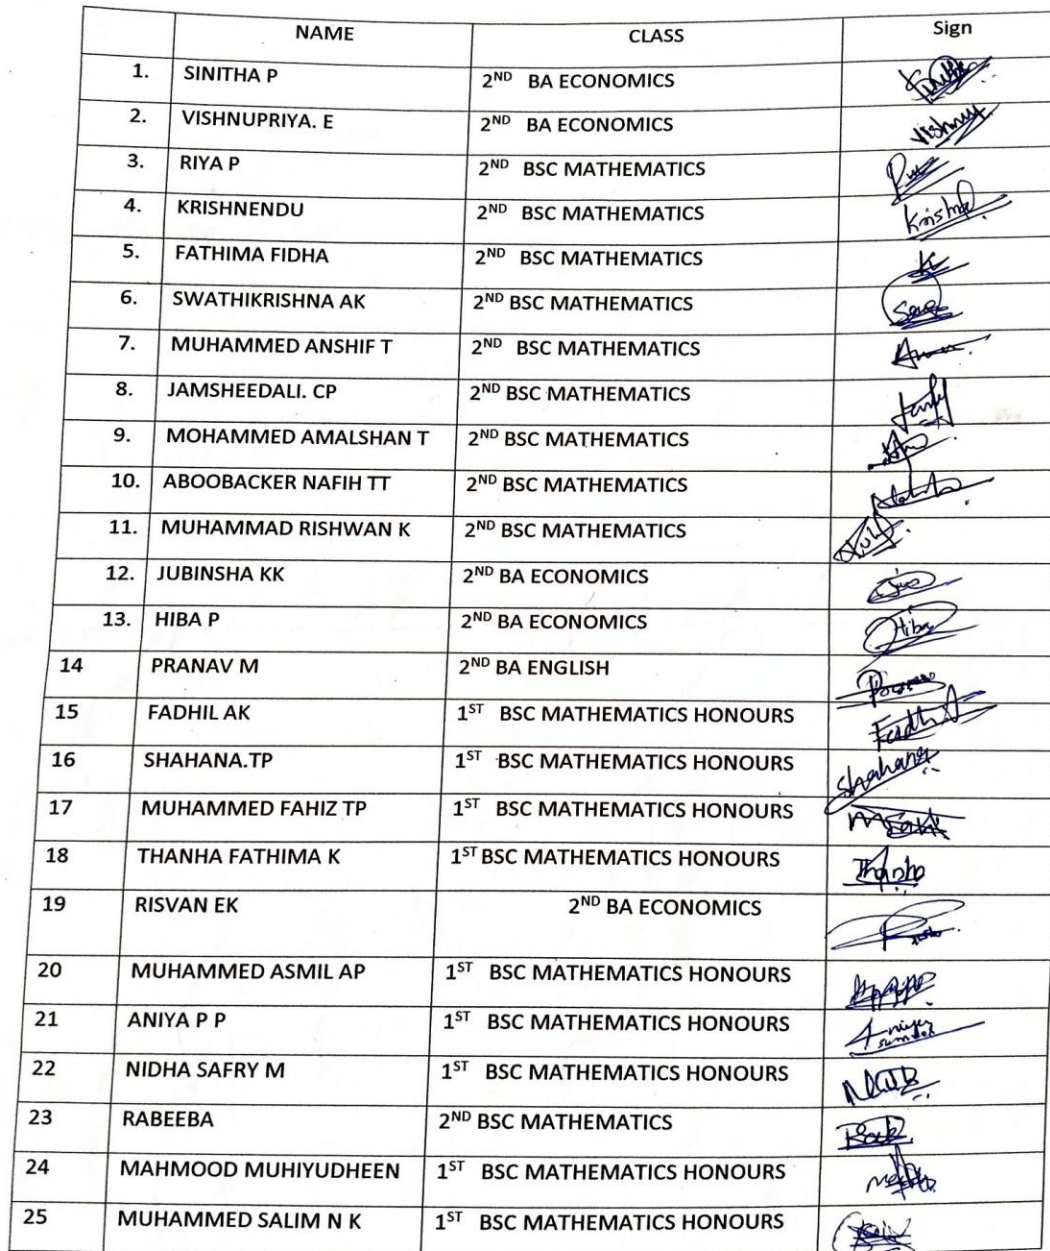 NAME CLASS Sign
1. SINITHA P 2ND BA ECONOMICS
2. VISHNUPRIYA. E 2ND BA ECONOMICS Vishnu
3. RIYA P 2ND BSC MATHEMATICS
4. KRISHNENDU 2ND BSC MATHEMATICS
5. FATHIMA FIDHA 2ND BSC MATHEMATICS
6. SWATHIKRISHNA AK 2ND BSC MATHEMATICS
7. MUHAMMED ANSHIF T 2ND BSC MATHEMATICS
8. JAMSHEEDALI. CP 2ND BSC MATHEMATICS
9. MOHAMMED AMALSHAN T 2ND BSC MATHEMATICS
10. ABOOBACKER NAFIH TT 2ND BSC MATHEMATICS
11. MUHAMMAD RISHWAN K 2ND BSC MATHEMATICS
12. JUBINSHA KK 2ND BA ECONOMICS
13. HIBA P 2ND BA ECONOMICS Hiba
14 PRANAV M 2ND BA ENGLISH
15 FADHIL AK 1ST BSC MATHEMATICS HONOURS
16 SHAHANA.TP 1ST BSC MATHEMATICS HONOURS Shahana
17 MUHAMMED FAHIZ TP 1ST BSC MATHEMATICS HONOURS
18 THANHA FATHIMA K 1ST BSC MATHEMATICS HONOURS
19 RISVAN EK 2ND BA ECONOMICS
20 MUHAMMED ASMIL AP 1ST BSC MATHEMATICS HONOURS
21 ANIYA P P 1ST BSC MATHEMATICS HONOURS
22 NIDHA SAFRY M 1ST BSC MATHEMATICS HONOURS
23 RABEEBA 2ND BSC MATHEMATICS
24 MAHMOOD MUHIYUDHEEN 1ST BSC MATHEMATICS HONOURS
25 MUHAMMED SALIM N K 1ST BSC MATHEMATICS HONOURS